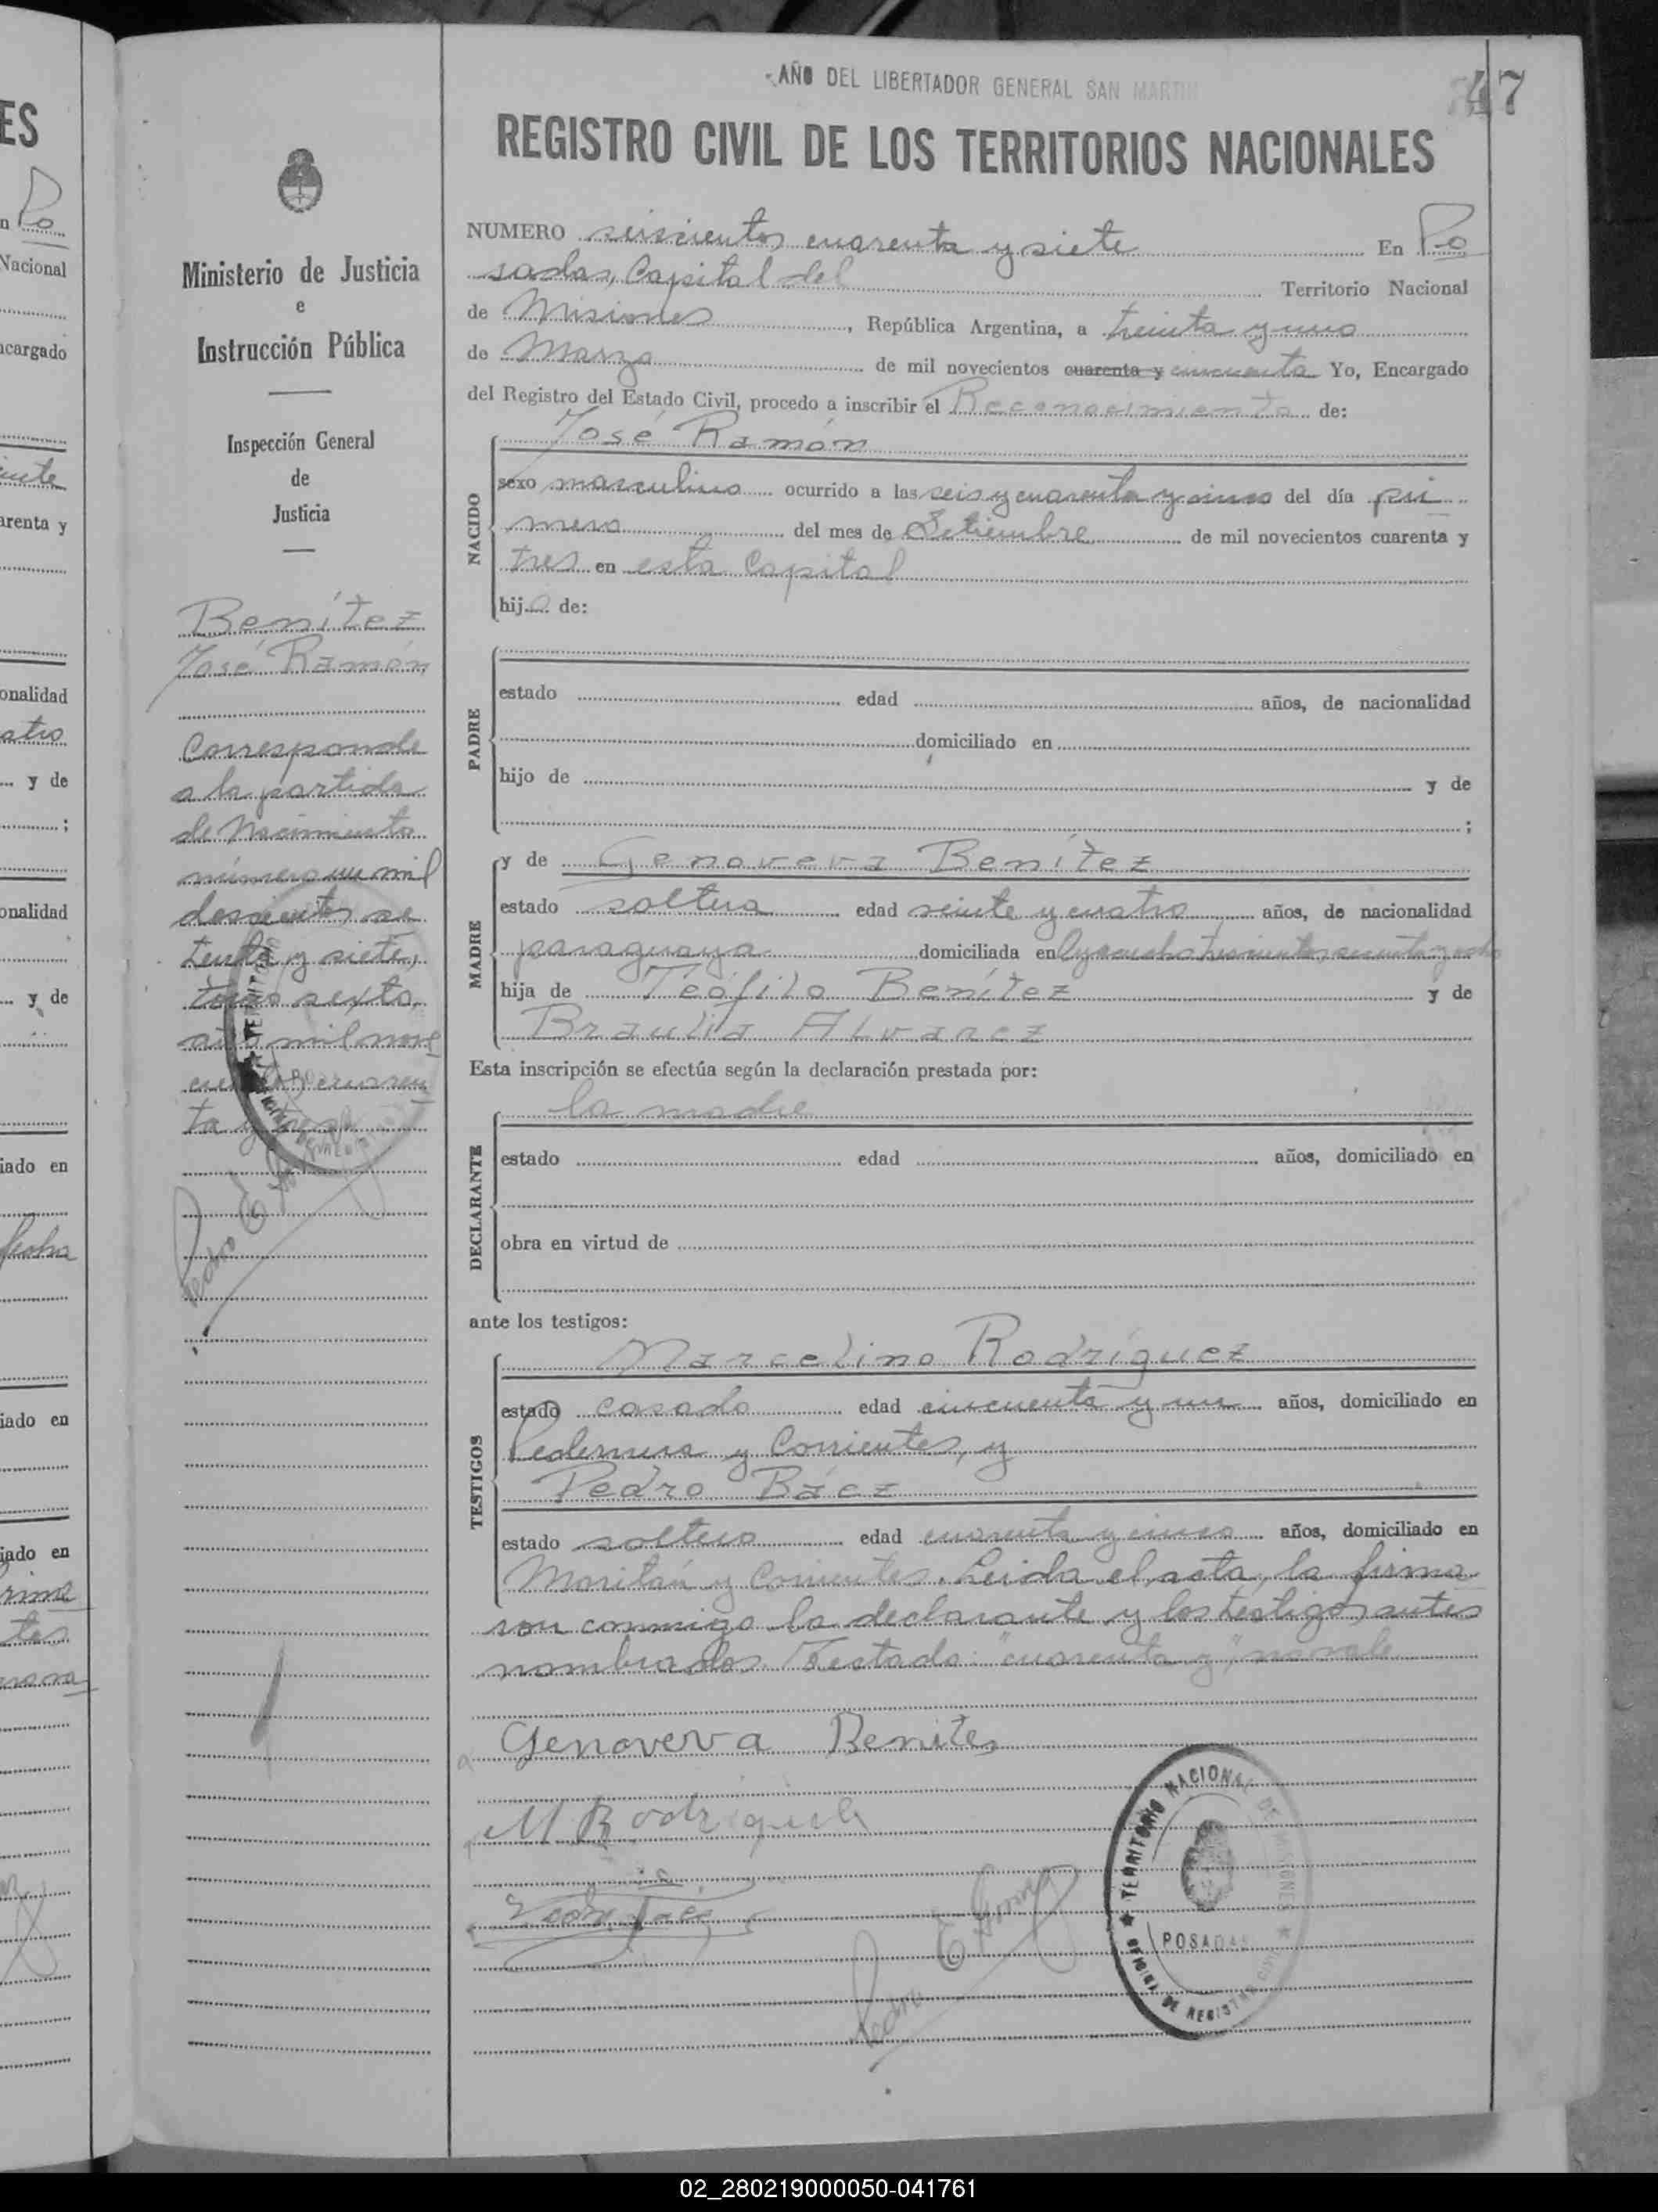 AÑO DEL LIBERTADOR GENERAL SAN MARTIN
47
REGISTRO CIVIL DE LOS TERRITORIOS NACIONALES
Ministerio de Justicia
e
Instrucción Pública
Inspección General
de
Justicia
Benítez
José Ramón
Corresponde
a la partida
de Nacimiento
número un mil
doscientos se
tenta y siete,
tomo sexto,
año mil nove
cientos cuaren
ta y tres
NUMERO seiscientos cuarenta y siete En Po
sadas, Capital del Territorio Nacional
de Misiones, República Argentina, a treinta y uno
de Marzo de mil novecientos cuarenta y cincuenta Yo, Encargado
del Registro del Estado Civil, procedo a inscribir el Reconocimiento de:
NACIDO
José Ramón
sexo masculino ocurrido a las seis y cuarenta y cinco del día pri
mero del mes de Setiembre de mil novecientos cuarenta y
tres en esta Capital
hijo de:
PADRE
estado edad años, de nacionalidad
domiciliado en
hijo de y de
;
MADRE
y de Genoveva Benítez
estado soltera edad veinte y cuatro años, de nacionalidad
paraguaya domiciliada en Ayacucho trescientos sesenta y ocho
hija de Teófilo Benítez y de
Braulia Alvarez
Esta inscripción se efectúa según la declaración prestada por:
DECLARANTE
la madre
estado edad años, domiciliado en
obra en virtud de
ante los testigos:
TESTIGOS
Marcelino Rodríguez
estado casado edad cincuenta y un años, domiciliado en
Pedernera y Corrientes, y
Pedro Báez
estado soltero edad cuarenta y cinco años, domiciliado en
Moritán y Corrientes. Leida el acta, la firma
ron conmigo la declarante y los testigos antes
nombrados. Testado: "cuarenta y", no vale
Genoverva Benites
M Rodriguez
Pedro E Gomez
TERRITORIO NACIONAL DE MISIONES
POSADAS
OFICINA DE REGISTRO CIVIL
ES
Po
Nacional
ncargado
arenta y
onalidad
y de
;
onalidad
y de
iado en
fecha
iado en
iado en
02_280219000050-041761